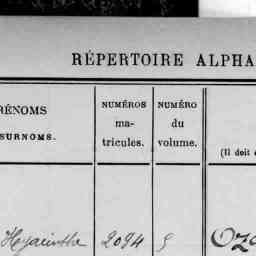 RÉPERTOIRE ALPHA
RÉNOMS
SURNOMS.
NUMÉROS
ma-
tricules.
NUMÉRO
du
volume.
(Il doit
Hyacinthe 2094 5